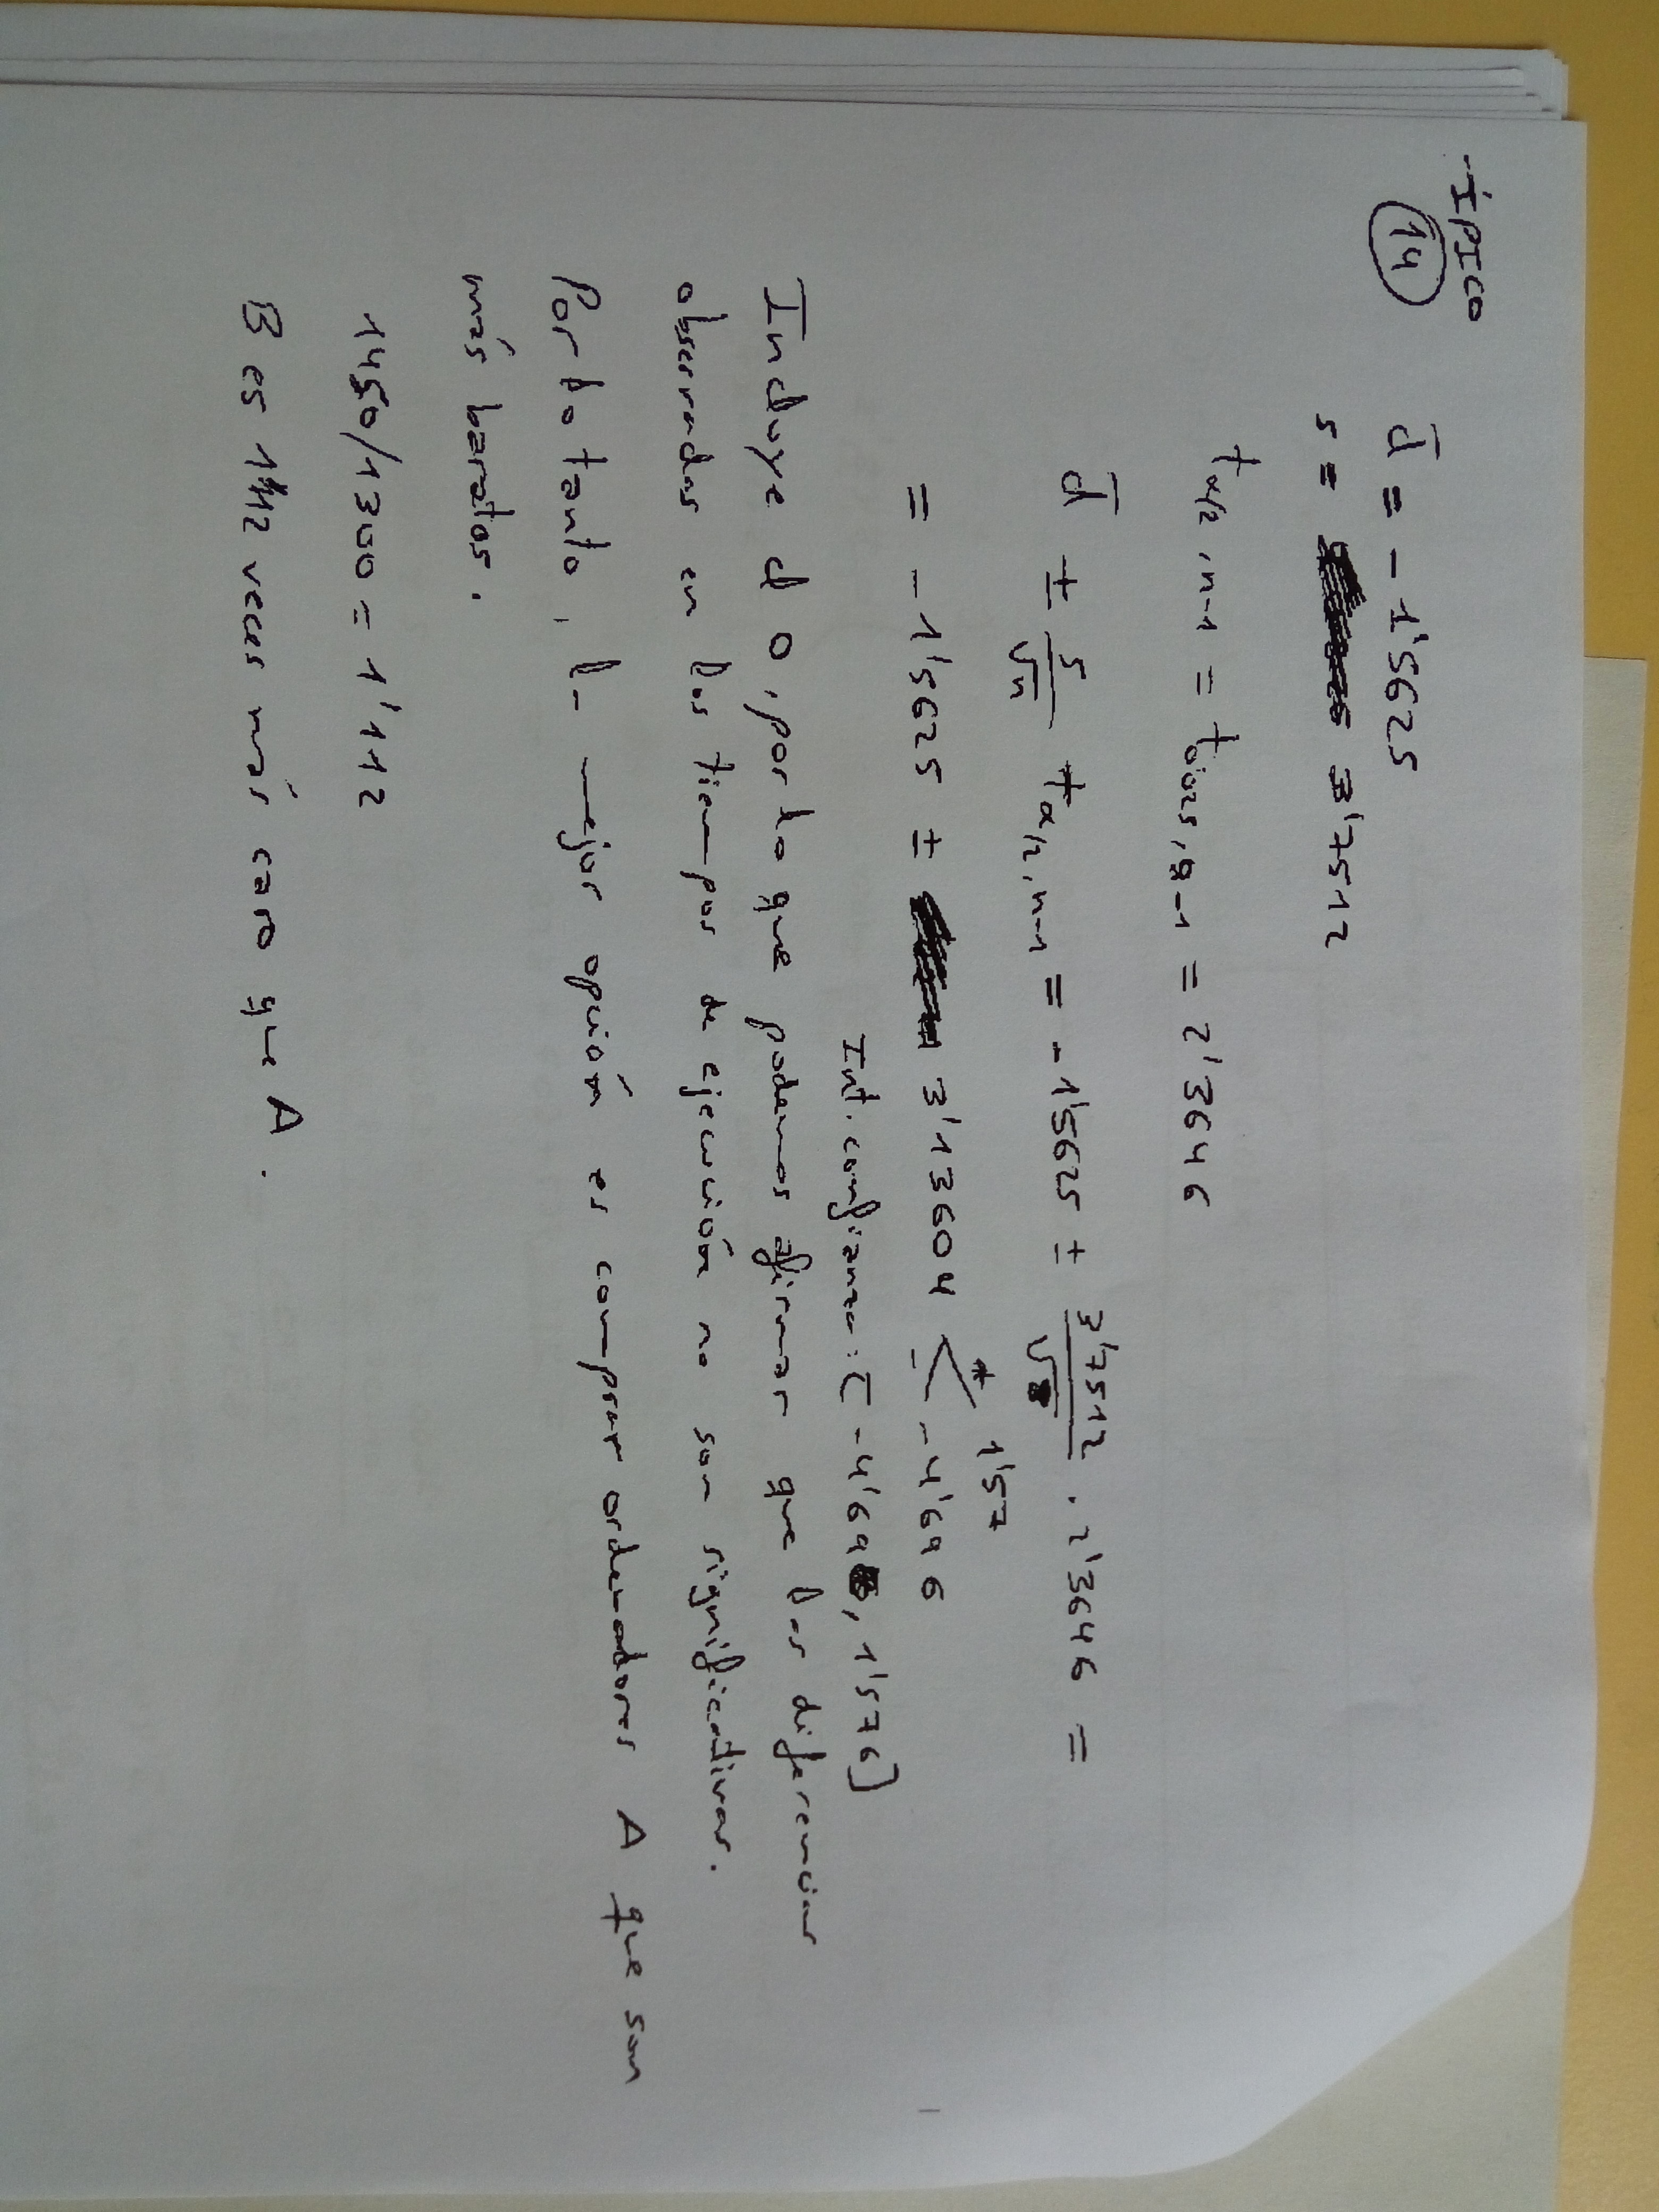 ÍPICO
14
d̄ = - 1'5625
s = 3'7512
t α/2, n-1 = t 0'025, 8-1 = 2'3646
d̄ ± s/√n t α/2, n-1 = - 1'5625 ± 3'7512/√8 · 2'3646 =
= - 1'5625 ± 3'13604 < + 1'57
- -4'696
Int. confianza: [-4'696, 1'576]
Incluye el 0, por lo que podemos afirmar que las diferencias
observadas en los tiempos de ejecución no son significativas.
Por lo tanto, la mejor opción es comprar ordenadores A que son
más baratos.
1450/1300 = 1'112
B es 1'112 veces más caro que A.